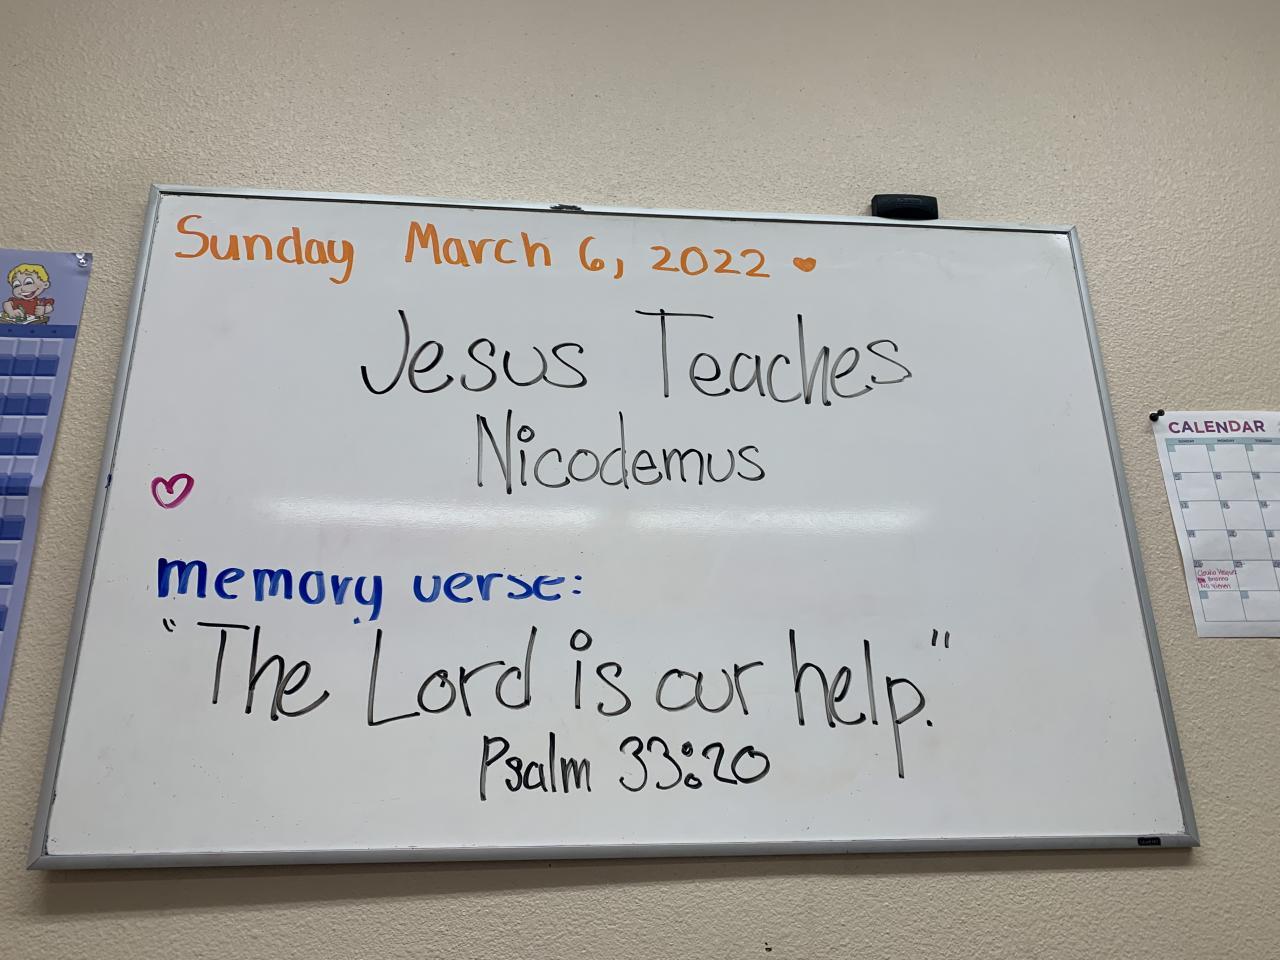 Sunday March 6, 2022
Jesus Teaches
Nicodemus
memory verse:
"The Lord is our help."
Psalm 33:20
CALENDAR
SUNDAY MONDAY TUESDAY